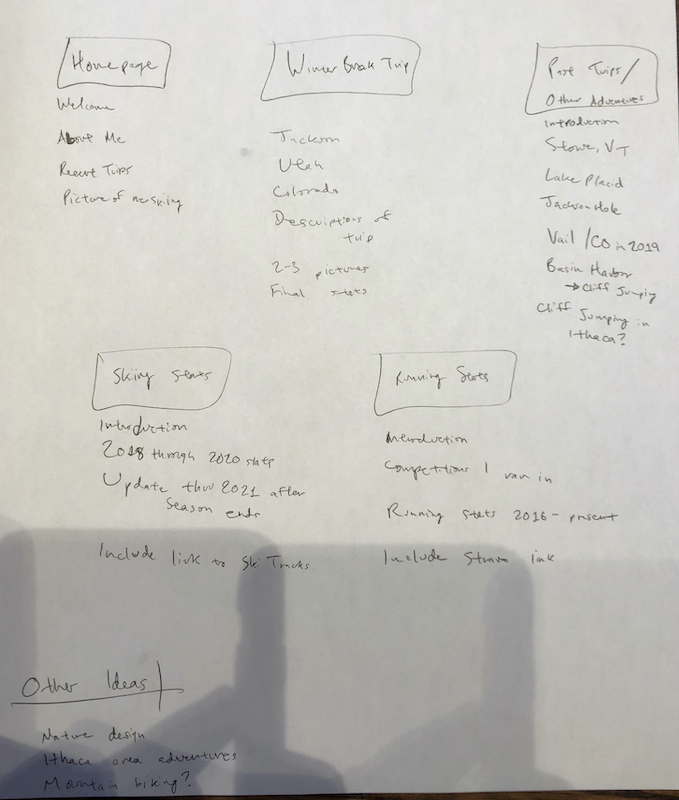 Homepage
Welcome
About Me
Recent Trips
Picture of me skiing
Winter Break Trip
Jackson
Utah
Colorado
Descriptions of
trip
2-3 pictures
Final stats
Past Trips/
Other Adventures
Introduction
Stowe, VT
Lake Placid
Jackson Hole
Vail/CO in 2019
Basin Harbor
→ Cliff Jumping
Cliff Jumping in
Ithaca?
Skiing Stats
Introduction
2018 through 2020 stats
Update thru 2021 after
Season ends
Include link to Ski Tracks
Running Stats
Introduction
Competitions I ran in
Running stats 2016-present
Include Strava link
Other Ideas
Nature design
Ithaca area adventures
Mountain biking?